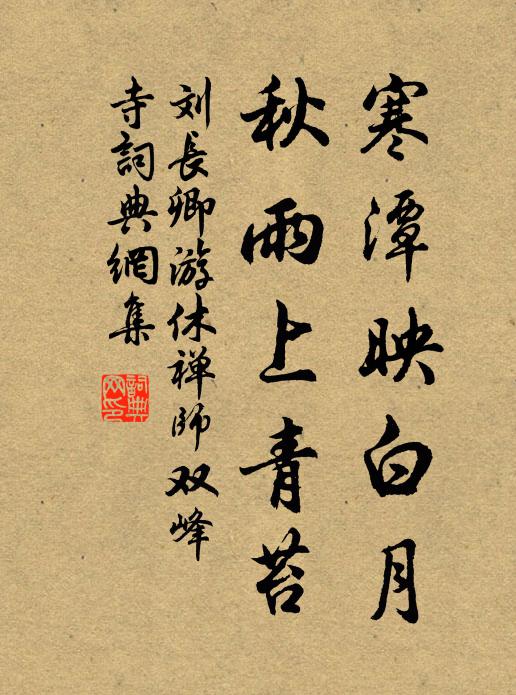 寒潭映白月
秋雨上青苔
刘長卿游休禅师双峰
寺詞典網集
詞典網印